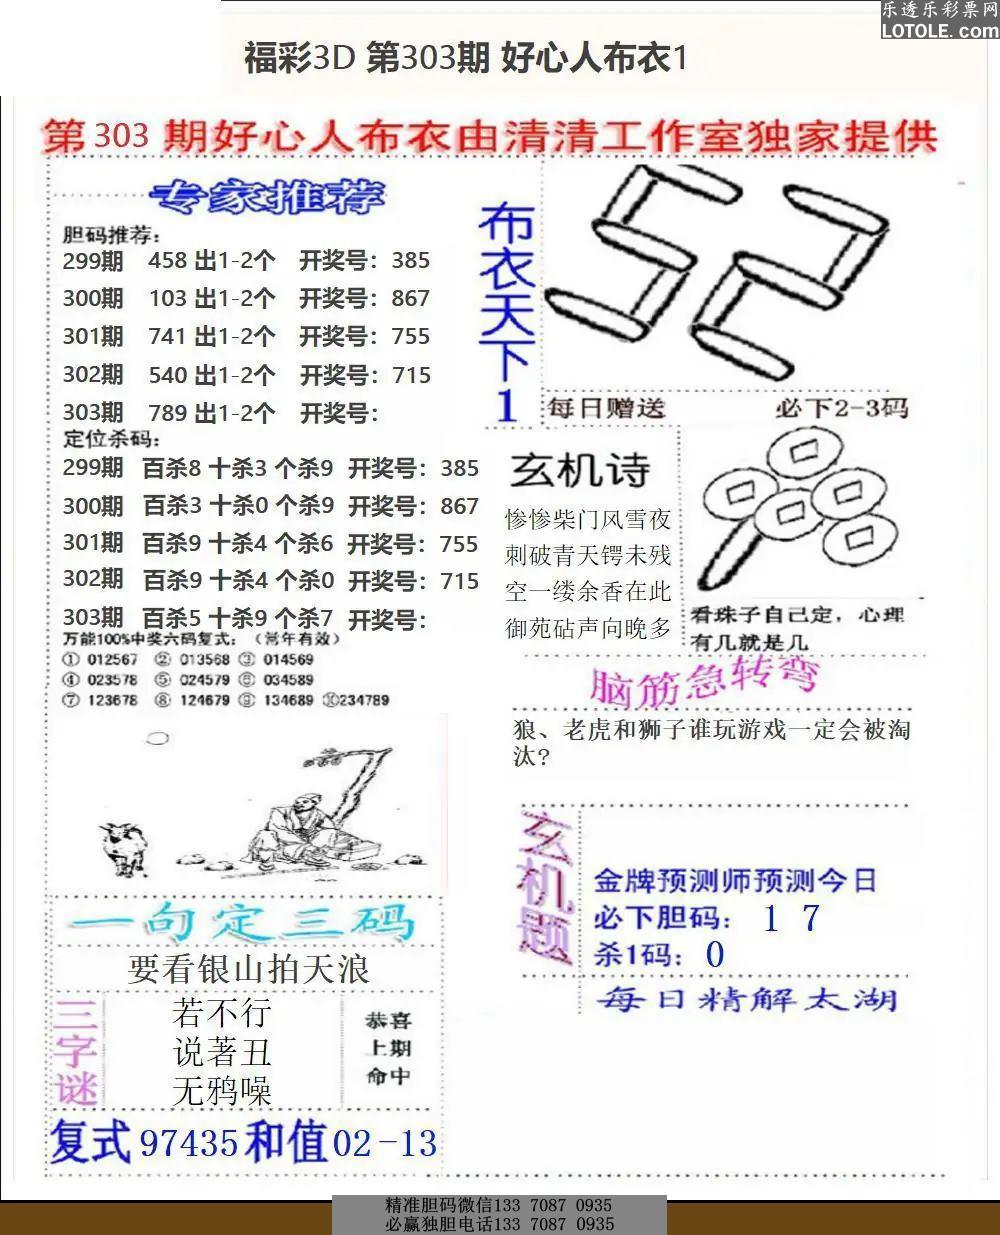 乐透乐彩票网
LOTOLE.com
福彩3D 第303期 好心人布衣1
第303期好心人布衣由清清工作室独家提供
专家推荐
胆码推荐：
299期 458 出1-2个 开奖号：385
300期 103 出1-2个 开奖号：867
301期 741 出1-2个 开奖号：755
302期 540 出1-2个 开奖号：715
303期 789 出1-2个 开奖号：
定位杀码：
299期 百杀8 十杀3 个杀9 开奖号：385
300期 百杀3 十杀0 个杀9 开奖号：867
301期 百杀9 十杀4 个杀6 开奖号：755
302期 百杀9 十杀4 个杀0 开奖号：715
303期 百杀5 十杀9 个杀7 开奖号：
万能100%中奖六码复式：（常年有效）
① 012567 ② 013568 ③ 014569
④ 023578 ⑤ 024579 ⑥ 034589
⑦ 123678 ⑧ 124679 ⑨ 134689 ⑩234789
布衣天下1
每日赠送 必下2-3码
玄机诗
惨惨柴门风雪夜
刺破青天锷未残
空一缕余香在此
御苑砧声向晚多
看珠子自己定，心理
有几就是几
脑筋急转弯
狼、老虎和狮子谁玩游戏一定会被淘
汰?
玄机题
金牌预测师预测今日
必下胆码：1 7
杀1码：0
每日精解太湖
一句定三码
要看银山拍天浪
三字谜
若不行
说著丑
无鸦噪
恭喜
上期
命中
复式 97435 和值 02-13
精准胆码微信133 7087 0935
必赢独胆电话133 7087 0935